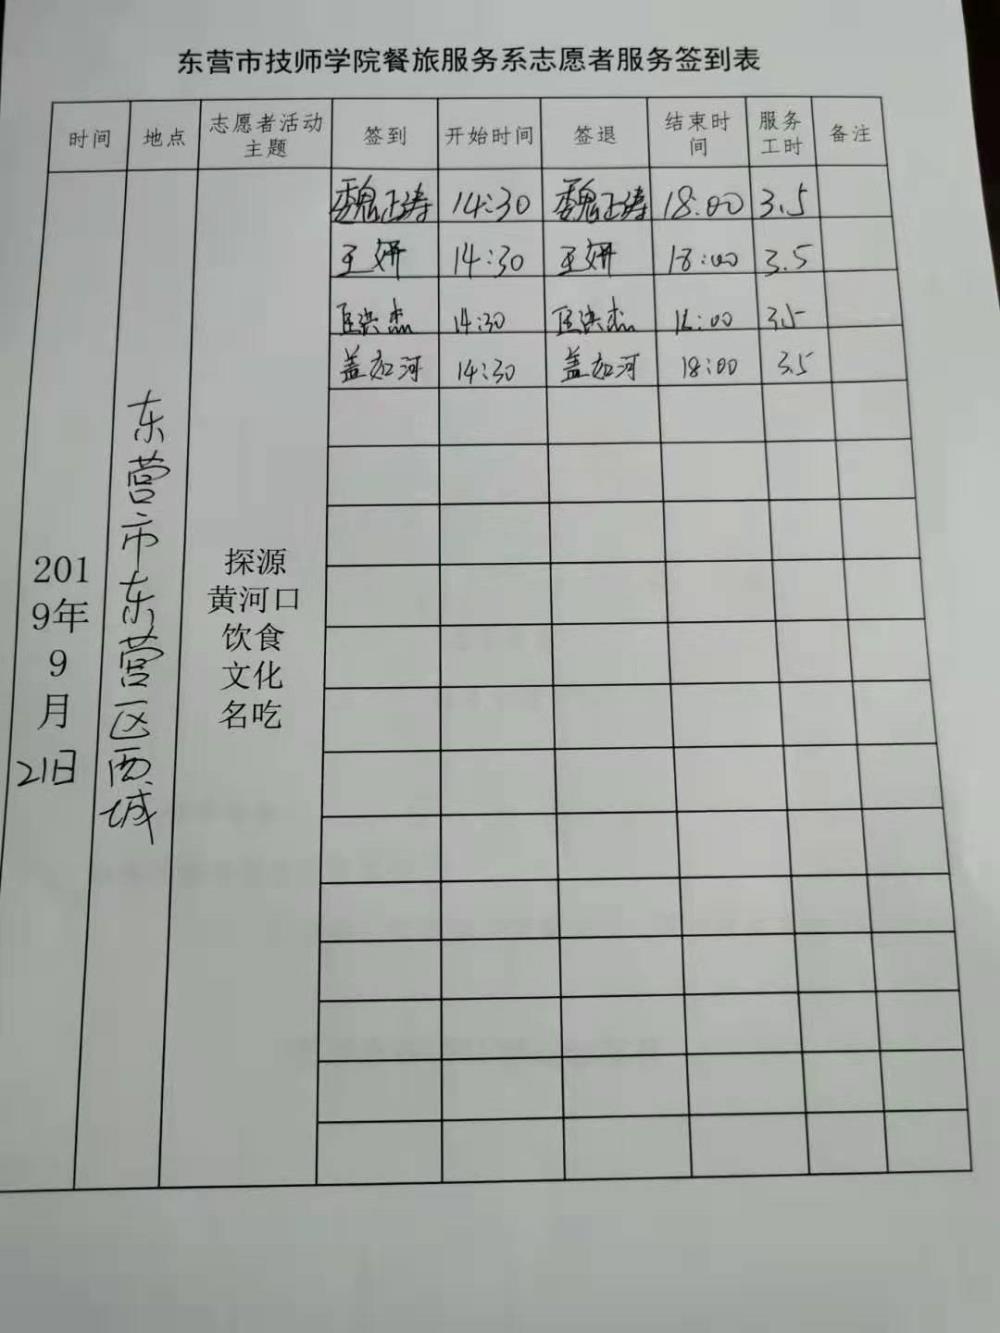 东营市技师学院餐旅服务系志愿者服务签到表
时间 地点 志愿者活动主题 签到 开始时间 签退 结束时间 服务工时 备注
魏正涛 14:30 魏正涛 18:00 3.5
王妍 14:30 王妍 18:00 3.5
洪杰 14:30 洪杰 16:00 3.5
盖如河 14:30 盖如河 18:00 3.5
2019年9月21日
东营市东营区西城
探源
黄河口
饮食
文化
名吃